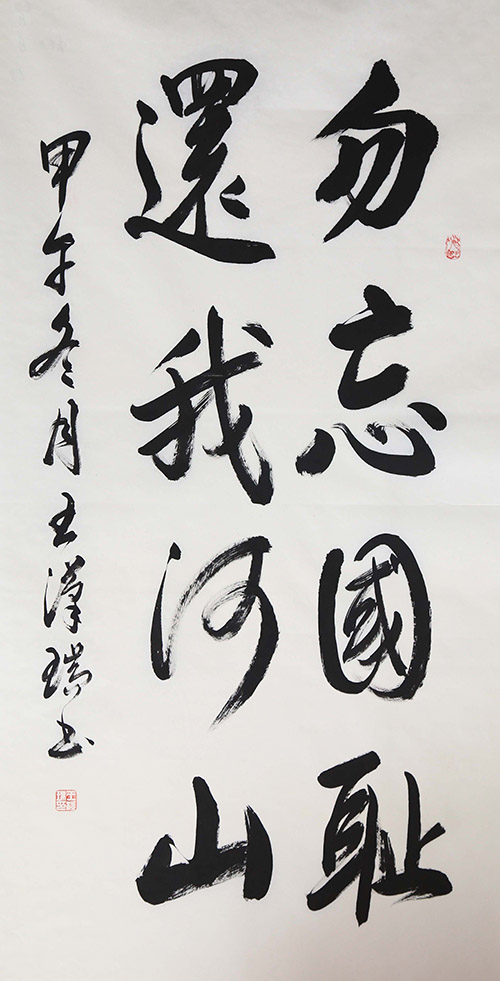 勿忘國耻
還我河山
甲午冬月王漢瑞书